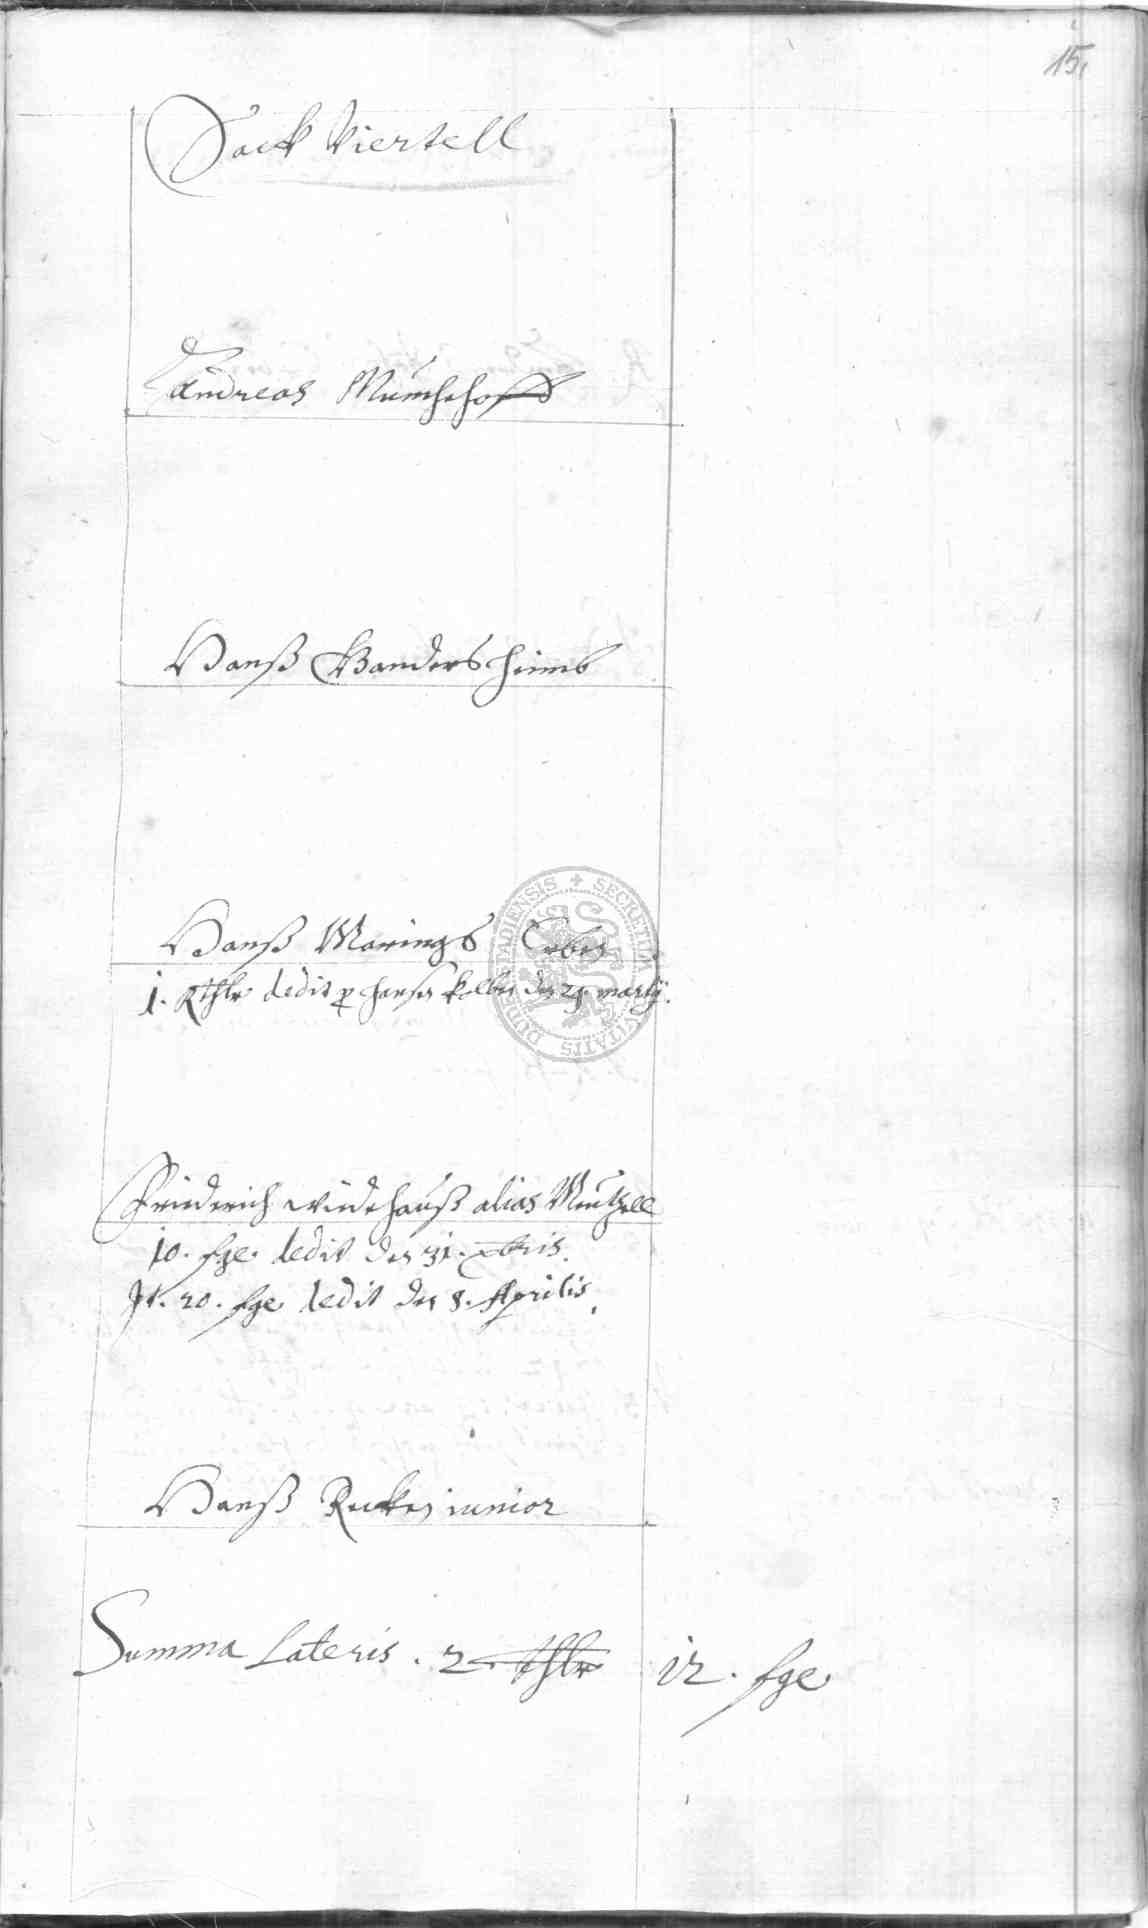 15.
Sack Viertell
Andreas Münchehoff
Hanß Ganders heims
Hanß Marings Erben
1. Rthlr dedit p Hansen Kolben den 29. martÿ.
Friederich windehauß alias Meutzell
10. sge. dedit den 31. xbris.
It. 20. sge dedit den 8. Aprilis.
Hanß Recken iunior
Summa Lateris . 2 thlr 12 . sge
SECRETUM CIVITATIS DUD STADIENSIS